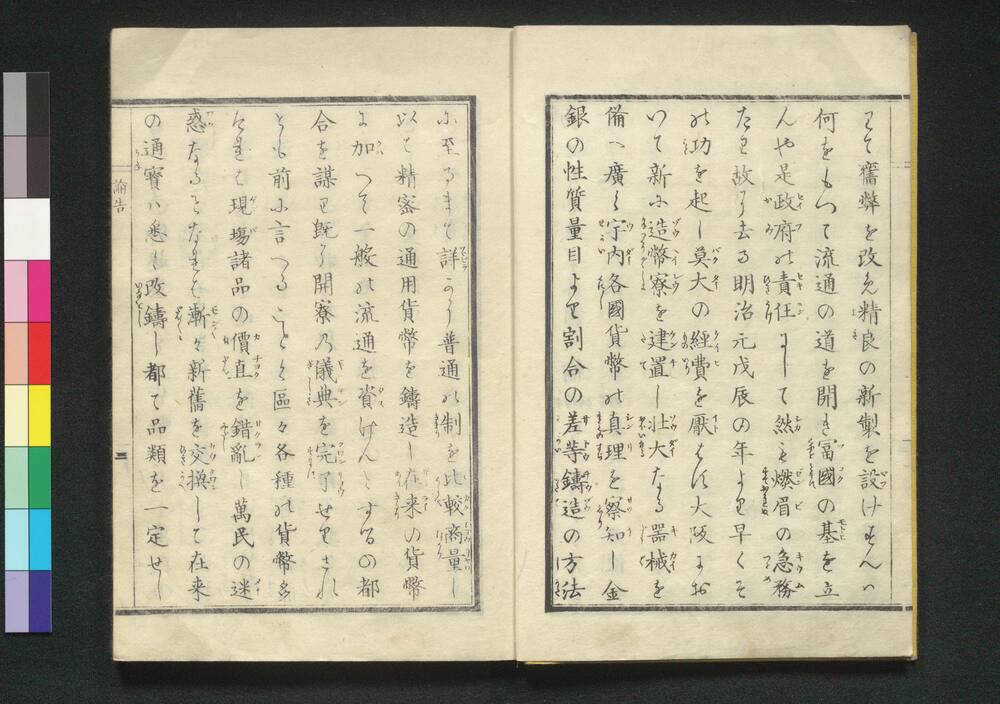 して舊弊を改め精良の新製を設けずんハ
何をもつて流通の道を開き富國の基を立
んや是政府の責任にして然も燃眉の急務
たり故に去る明治元戊辰の年より早くそ
の功を起し莫大の經費を厭はす大阪にお
いて新に造幣寮を建置し壮大なる器械を
備へ廣く宇内各國貨幣の真理を察知し金
銀の性質量目より割合の差等鑄造の方法
に至るまて詳かに普通の制を比較商量し
以て精密の通用貨幣を鑄造し在来の貨幣
に加へて一般の流通を資けんとするの都
合を謀り既に開寮乃儀典を完了せりされ
とも前に言へることく區々各種の貨幣多
けれは現場諸品の價直を錯亂し萬民の迷
惑なることなれは漸々新舊を交換して在来
の通寶ハ悉く改鑄し都て品類を一定せし
諭告
三